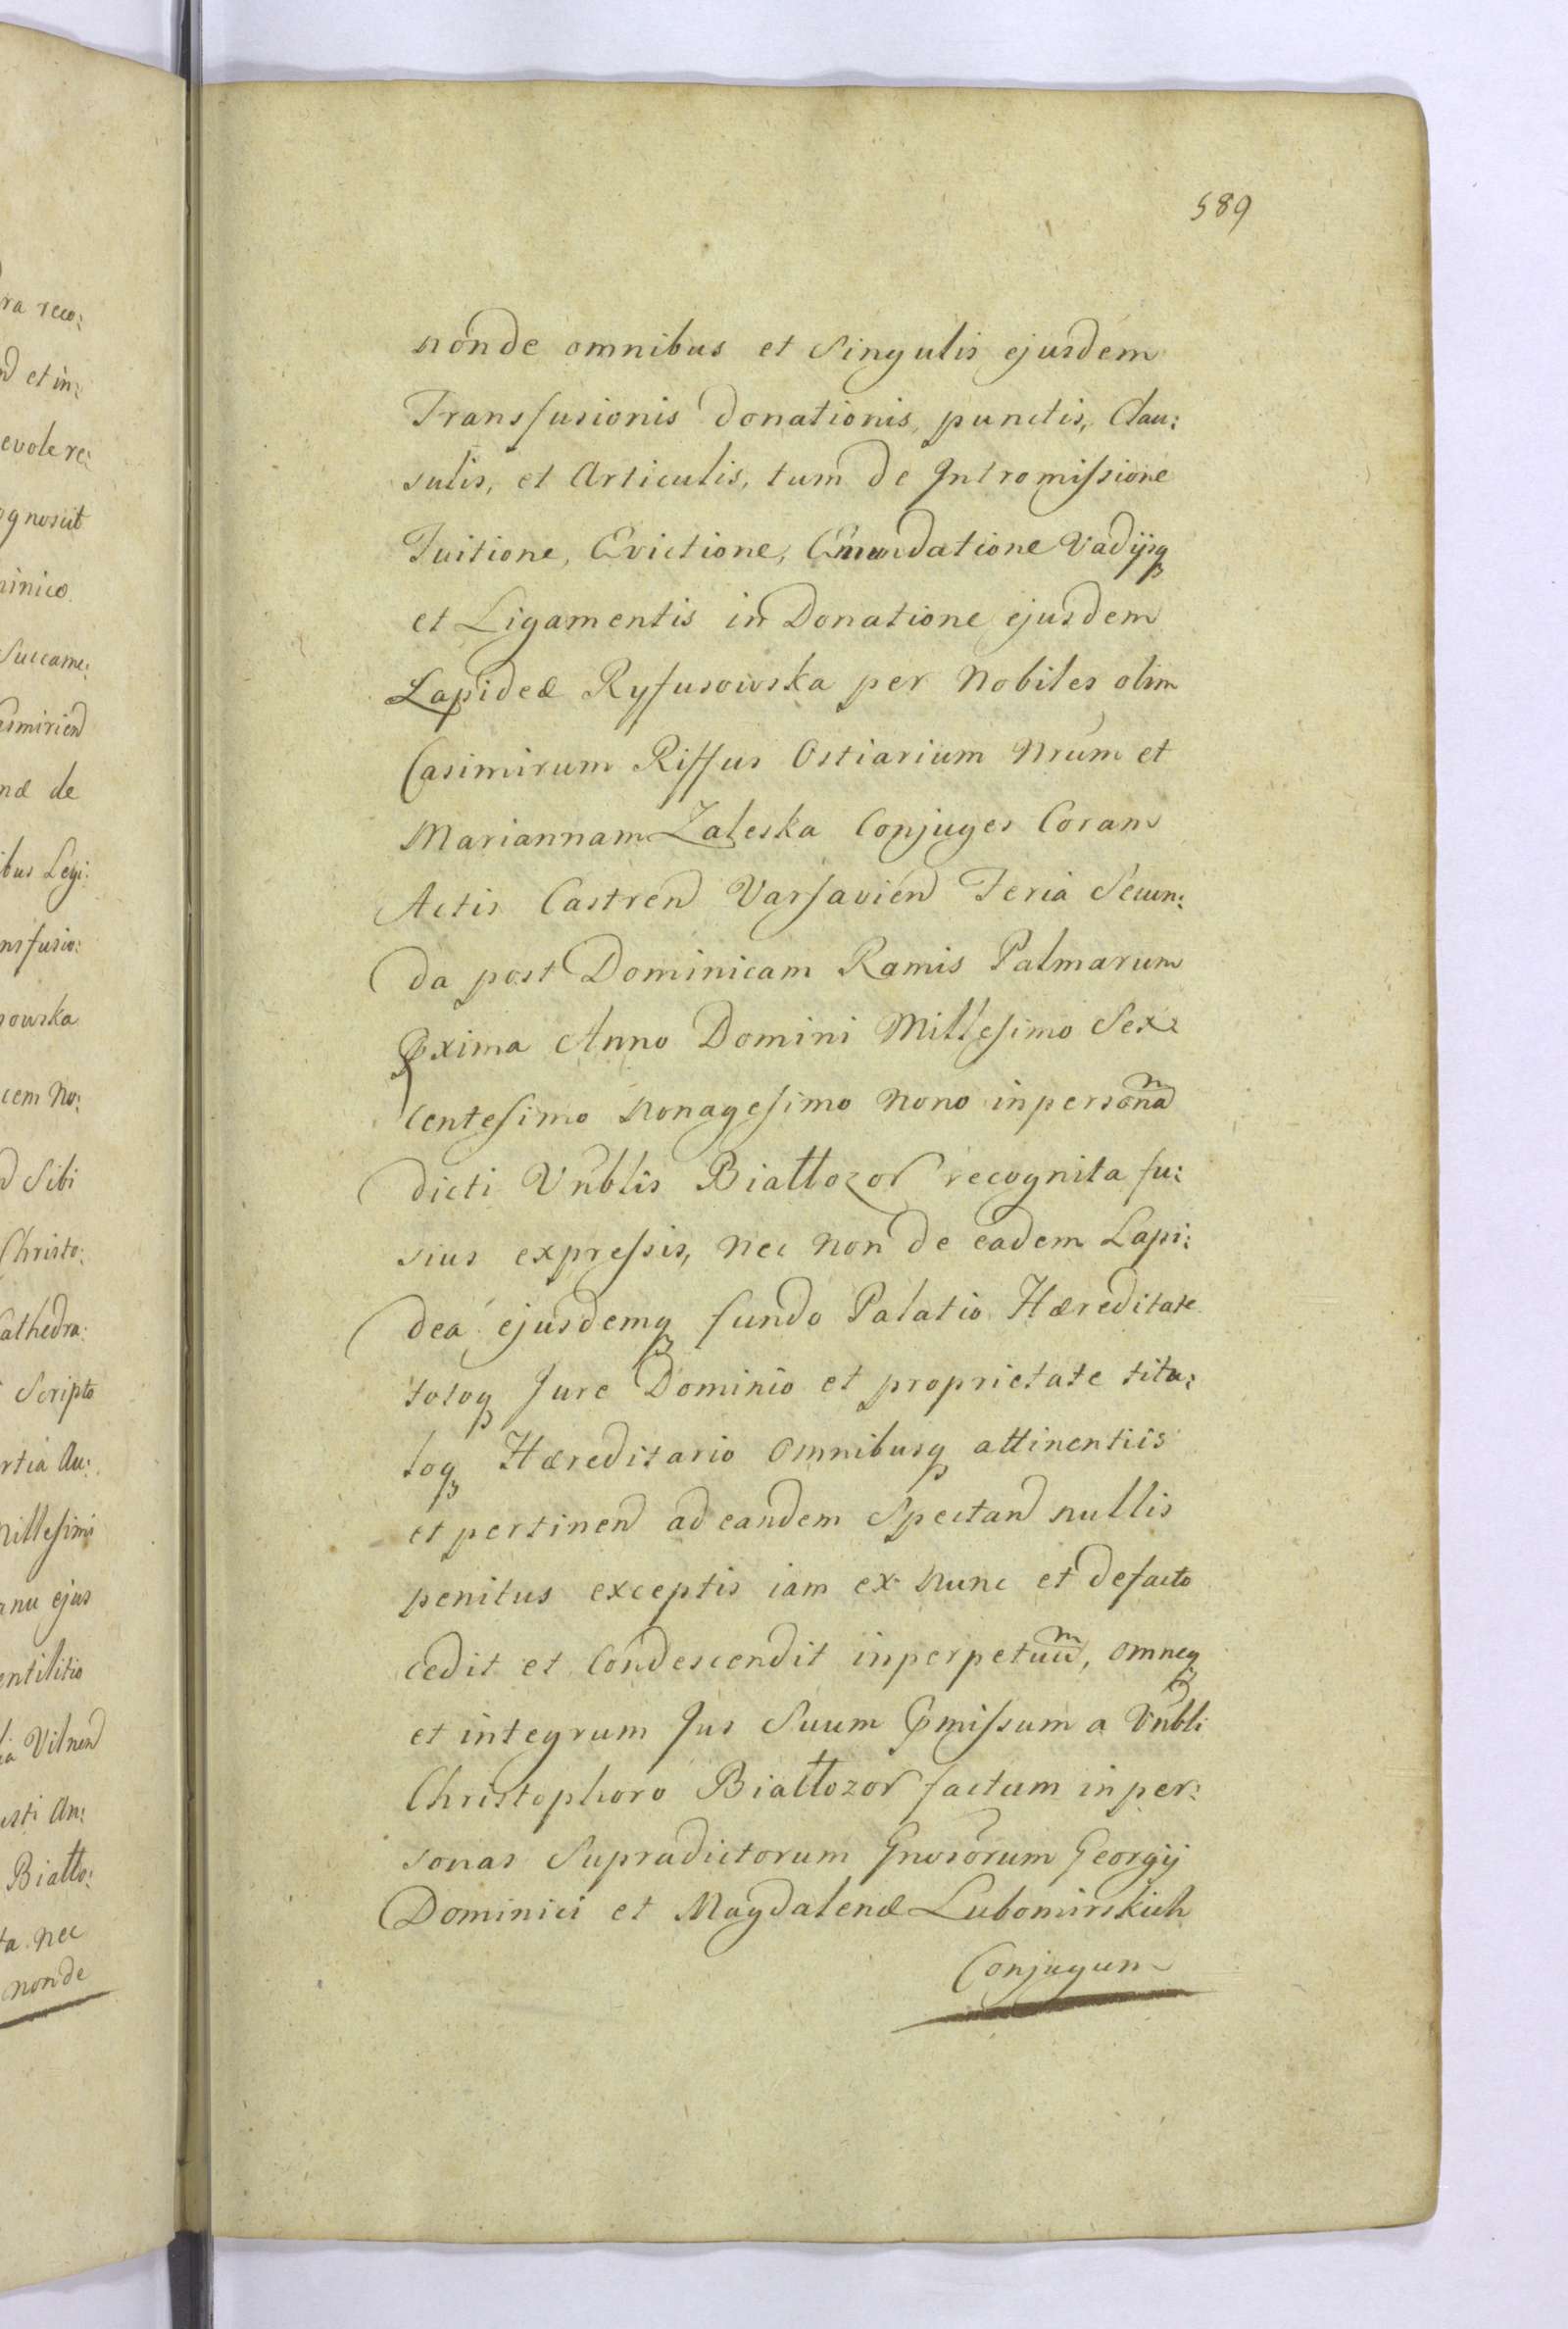 589
ra reco:
nd et in:
evole re:
ognosút
ninico
Succame:
asmiriend
næ de
ibus Legi:
nsfusio:
sowska
cem No:
d Sibi
Christo:
Cathedra:
Scripto
rtia Au:
Millesimi
anu ejus
entilitio
ia Vilnend
usti An:
Biallo:
ta nec
nonde
nonde omnibus et Singulis ejusdem
Transfusionis donationis, punctis, Clau:
sulis, et Articulis, tum de Intromissione
Tuitione, Evictione, Emundatione Vadijsq
et Ligamentis in Donatione ejusdem
Lapideæ Ryfusowska per Nobiles olim
Casimirum Riffus Ostiarium Nrum et
Mariannam Zaleska Conjuges Coram
Actis Castrend Varsaviend Feria Secun:
da post Dominicam Ramis Palmarum
Pxima Anno Domini Millesimo Sex:
centesimo Nonagesimo Nono in personam
dicti Vnblis Biallozor recognita fu:
sius expressis, nec non de eadem Lapi:
dea ejusdemq fundo Palatio Hæreditate
totoq Jure Dominio et proprietate titu:
loq Hæreditario omnibusq attinentiis
et pertinend ad eandem Spectand nullis
penitus exceptis iam ex nunc et defacto
cedit et Condescendit in perpetuum, omneq
et integrum Jus Suum Pmissum a Vnbli
Christophoro Biallozor factum in per:
sonas Supradictorum Gnosorum Georgij
Dominici et Magdalenæ Lubomirskich
Conjugum